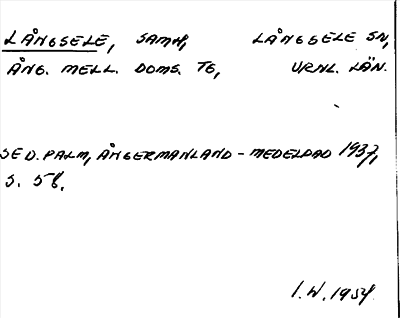 LÅNGSELE, SAMH, LÅNGSELE SN,
ÅNG. MELL. DOMS. TG, VRNL. LÄN.
SE D. PALM, ÅNGERMANLAND - MEDELPAD 1937,
S. 58.
I.W. 1954.